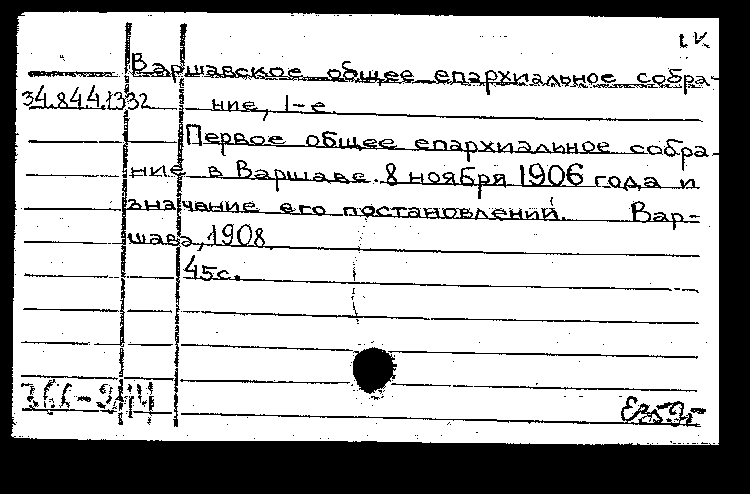 Варшавское общее епархиальное собра-
34.844.1332 ние, 1-е.
Первое общее епархиальное собра-
ние в Варшаве 8 ноября 1906 года и
значание его постановлений. Вар=
шава, 1908.
45с.